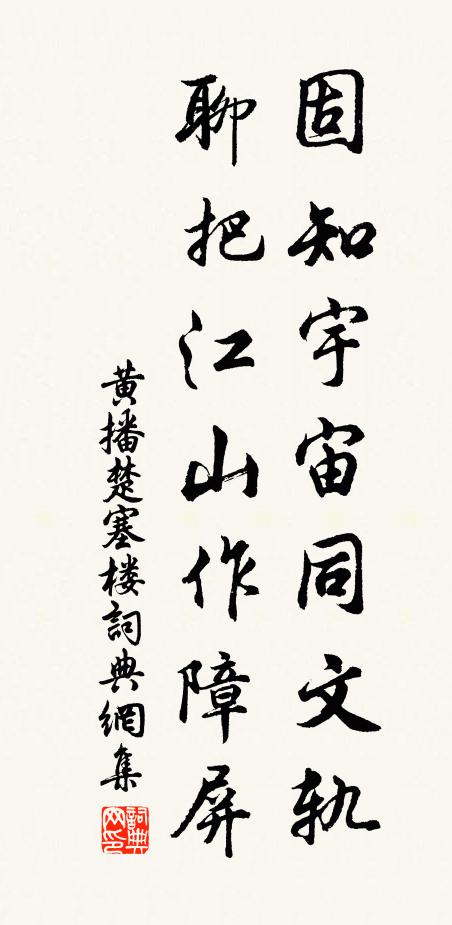 固知宇宙同文軌
聊把江山作障屏
黄播楚塞楼詞典網集
詞典网印